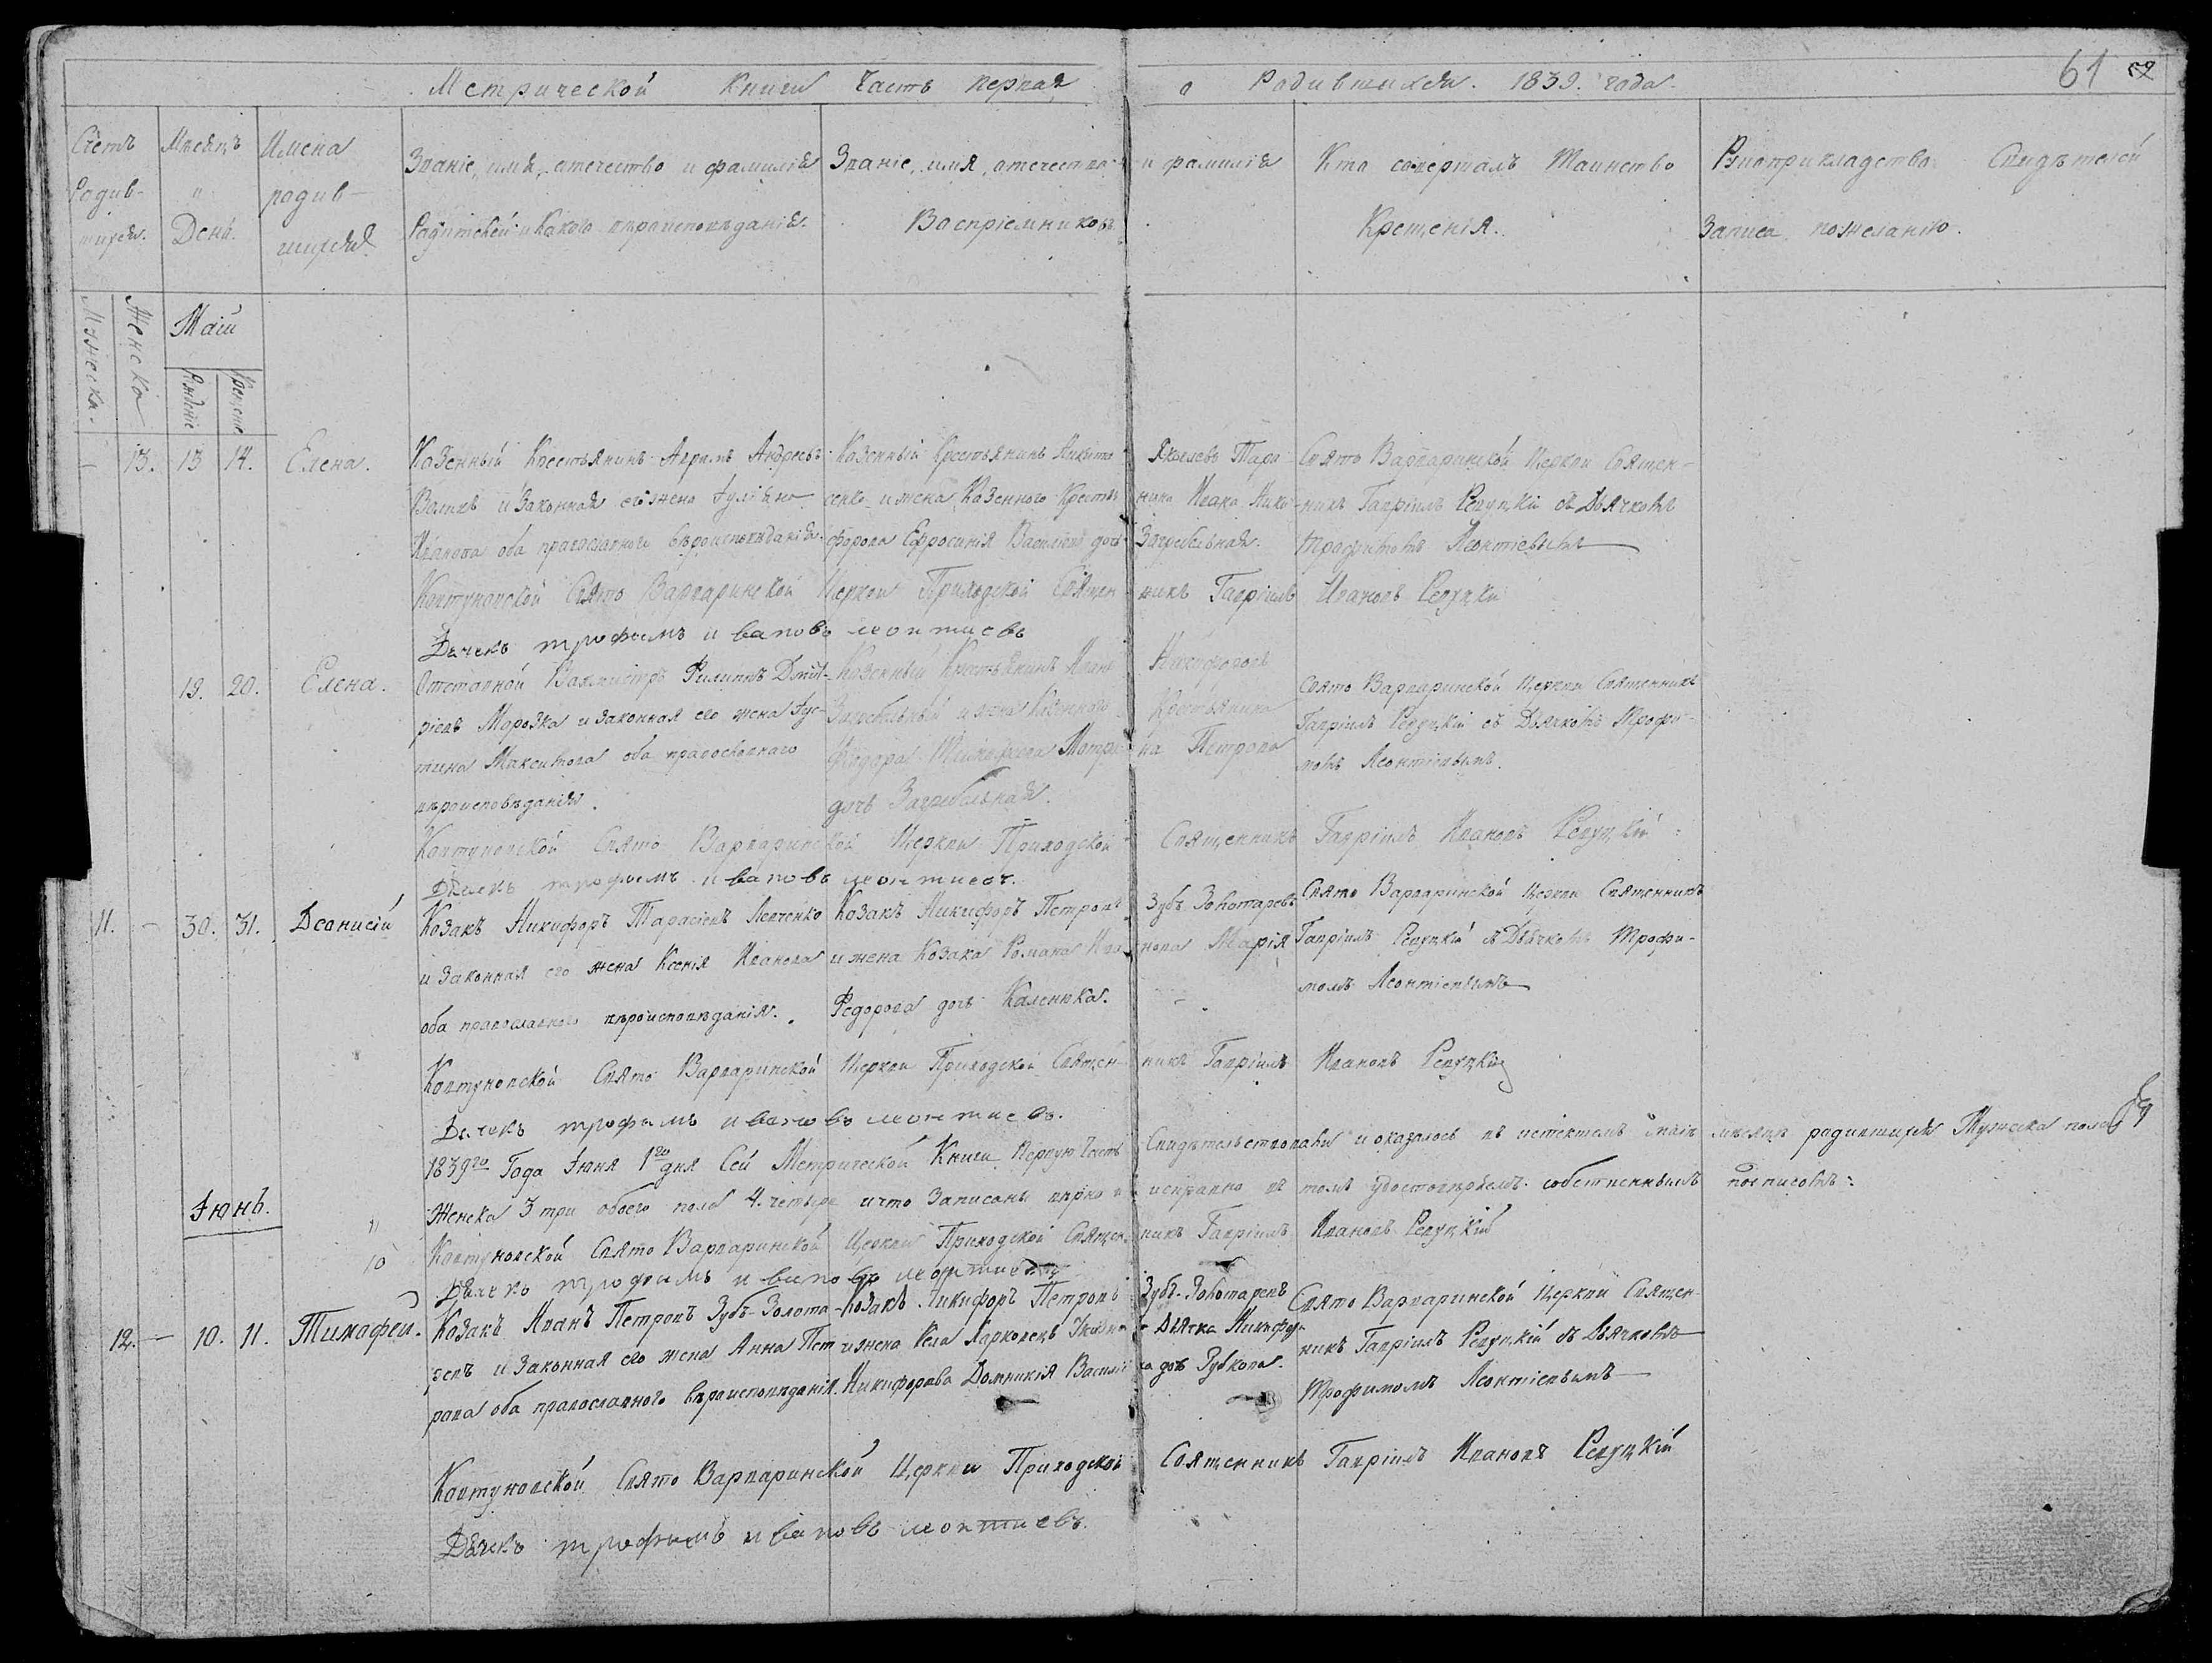 Метрической Книги Часть первая о Родившихся. 1839. года.
61
Счетъ Родив-шихся.
Мѣсяцъ и День.
Имена родив-шихся
Званіе, имя, отечество и фамилія Родителей и какого вѣроисповѣданія.
Званіе, имя, отечество и фамилія Воспріемниковъ.
Кто совершалъ Таинство Крещенія.
Рукоприкладство Свидѣтелей Записи по желанію.
Мужеска.
Женска
Маіи
Рожденіе
Крещеніе
– 13. 13 14. Елена.
Казенный Крестьянинъ Андреевъ
и Законная его жена Іуліяна
Иванова оба православнаго вѣроисповѣданія.
Казенный Крестьянинъ Никита Яковлевъ Тара
сенко и жена Казенного Крестьянина Ивана Ники
форова Ефросинія Васильева дочь Загребельная.
Свято Варваринской Церкви Священ-
никъ Гавріилъ Ревуцкій съ Дьячкомъ
Трофимомъ Леонтіевымъ
Ковтуновской Свято Варваринской Церкви Приходской Священникъ Гавріилъ Ивановъ Ревуцкій
Дячекъ трофимъ ивановъ леонтиевъ
19. 20. Елена.
Отставной Вахмистръ Филиппъ Дмит-
ріевъ Морозка и законная его жена Іус-
тина Максимова оба православнаго
вѣроисповѣданія.
Казенный Крестьянинъ Иванъ Никифоровъ
Загребельный и жена Казенного Крестьянина
Федора Матрона Петрова
дочь Загребельная.
Свято Варваринской Церкви Священникъ
Гавріилъ Ревуцкій съ Дьячкомъ Трофи-
момъ Леонтіевымъ.
Ковтуновской Свято Варваринской Церкви Приходской Священникъ Гавріилъ Ивановъ Ревуцкій
Дячекъ трофимъ ивановъ леонтиевъ.
11. – 30. 31. Деонисій
Козакъ Никифоръ Тарасіевъ Левченко
и Законная его жена Ксенія Иванова
оба православного вѣроисповѣданія.
Козакъ Никифоръ Петровъ Зубъ-Золотаревъ
и жена Козака Романа Иванова Марія
Федорова дочь Каленюка.
Свято Варваринской Церкви Священникъ
Гавріилъ Ревуцкій съ Дьячкомъ Трофи-
момъ Леонтіевымъ
Ковтуновской Свято Варваринской Церкви Приходской Священникъ Гавріилъ Ивановъ Ревуцкій
Дячекъ трофимъ ивановъ леонтиевъ.
1839го Года Іюня 1го дня Сей Метрической Книги Первую Часть Свидѣтельствовали и оказалось въ истекшемъ маіи мѣсяцѣ родившихся Мужеска пола
Женска 3 три обоего пола 4. четыре и что Записаны вѣрно и исправно въ томъ удостовѣряемъ собственнымъ подписомъ:
Ковтуновской Свято Варваринской Церкви Приходской Священникъ Гавріилъ Ивановъ Ревуцкій
Дячекъ трофимъ ивановъ леонтиевъ
Іюнь.
12. – 10. 11. Тимофей.
Козакъ Иванъ Петровъ Зубъ-Золота-
ревъ и Законная его жена Анна Пет
рова оба православного вѣроисповѣданія.
Козакъ Никифоръ Петровъ Зубъ-Золотаревъ
и жена Села Харковецъ Дьячка
Никифорова Домникія Василіева дочь Зубкова.
Свято Варваринской Церкви Священ-
никъ Гавріилъ Ревуцкій съ Дьячкомъ
Трофимомъ Леонтіевымъ
Ковтуновской Свято Варваринской Церкви Приходской Священникъ Гавріилъ Ивановъ Ревуцкій
Дячекъ трофимъ ивановъ леонтиевъ.